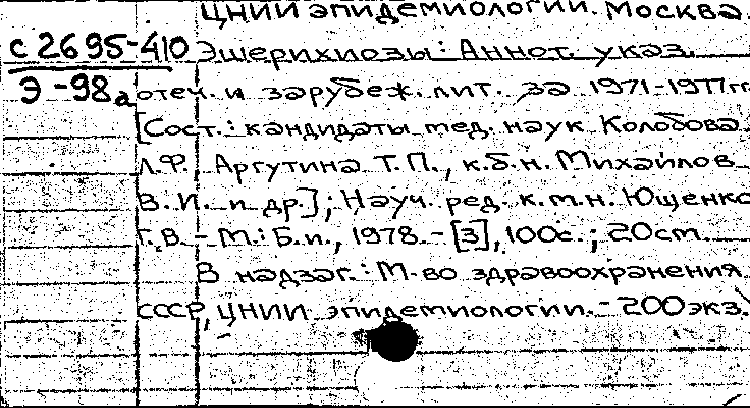 ЦНИИ эпидемиологии. Москва.
с2695-410 Эшерихиозы: Аннот. указ.
Э-98а отеч. и зарубеж. лит. за 1971-1977гг.
[Сост.: кандидаты мед. наук Колобова
Л.Ф., Аргутина Т.П., к.б.н. Михайлов
В.И. и др.]; Науч. ред. к.м.н. Ющенко
Г.В. – М.: Б.и., 1978. – [3], 100с.; 20см.
В надзаг.: М-во здравоохранения
СССР, ЦНИИ эпидемиологии. – 200экз.